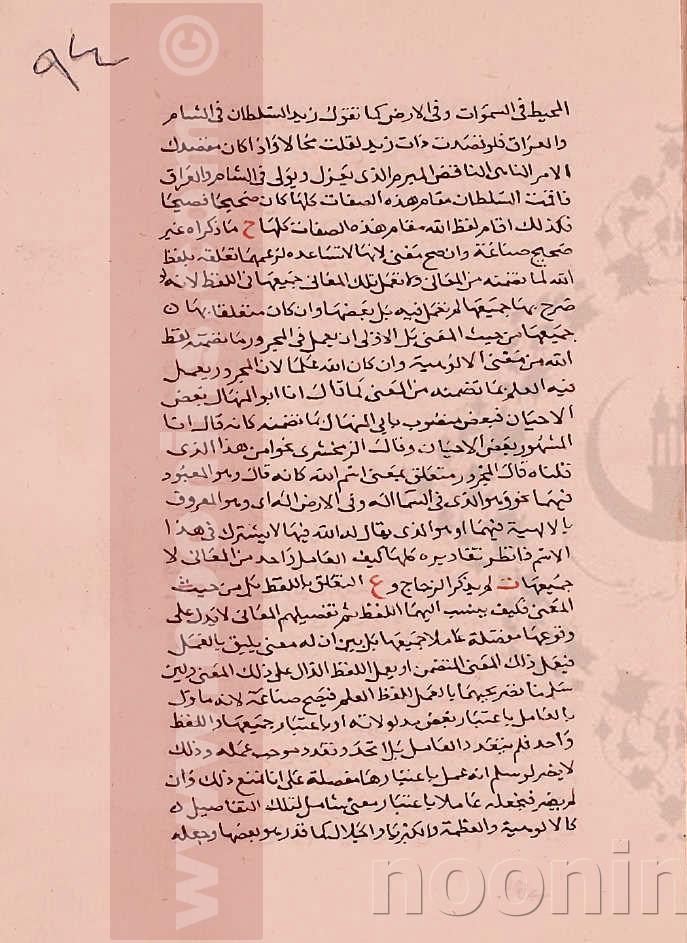 ٩٤
المحيط في السموات وفي الارض كما تقول زيد السلطان في الشام
والعراق فلو قصدت ذات زيد لقلت محالا واذا كان مقصدك
الامر الناهي الناقض المبرم الذي يعزل ويولى في الشام والعراق
فاقمت السلطان مقام هذه الصفات كلها كان صحيحا فصيحا
فكذلك اقام لفظ الله مقام هذه الصفات كلها ح ما ذكراه غير
صحيح صناعة وان صح معنى لانها لا تساعده لزعمهما تعلقه بلفظ
الله لما تضمنه من المعاني ولا تعمل تلك المعاني جميعها في اللفظ لانه لو
صرح بها جميعها لم تعمل فيه بل بعضها وان كان متعلقا بها
جميعها من حيث المعنى بل الاولى ان يعمل في المجرور ما تضمنه لفظ
الله من معنى الالوهية وان كان الله علما لان المجرور يعمل
فيه العلم بما تضمنه من المعنى كما قال انا ابو المنهال بعض
الاحيان فبعض منصوب بابي المنهال لما تضمنه كانه قال انا
المشهور بعض الاحيان وقال الزمخشري نحوا من هذا الذي
قلناه قال المجرور متعلق بمعنى اسم الله كانه قال وهو المعبود
فيهما نحو وهو الذي في السما اله وفي الارض اله اي وهو المعروف
بالالهية فيهما او هو الذي يقال له الله فيها لا يشترك في هذا
الاسم فانظر تقاديره كلها كيف العامل واحد من المعاني لا
جميعها ت لم يذكر الزجاج و ع التعلق باللفظ بل من حيث
المعنى فكيف ينسب اليهما اللفظ ثم تفصيلهم المعاني لا يدل على
وقوعها مفصلة عاملا جميعها بل يبين ان له معنى يليق بالعمل
فيعمل ذلك المعنى المتضمن او يعمل اللفظ الدال على ذلك المعنى ولين
سلمنا تصريحهما بالعمل للفظ العلم فيصح صناعة لانه ماول
بالعامل باعتبار بعض مدلولاته او باعتبار جميعها واللفظ
واحد فلم يتعدد العامل بل اتحد وتعدد موجب عمله وذلك
لا يضر لو سلم انه عمل باعتبارها مفصلة على انا نمنع ذلك وان
لم يضر فنجعله عاملا باعتبار معنى شامل لتلك التفاصيل
كالالوهية والعظمة والكبريا والجلال كما قدر هو بعضها وجعله
noonin